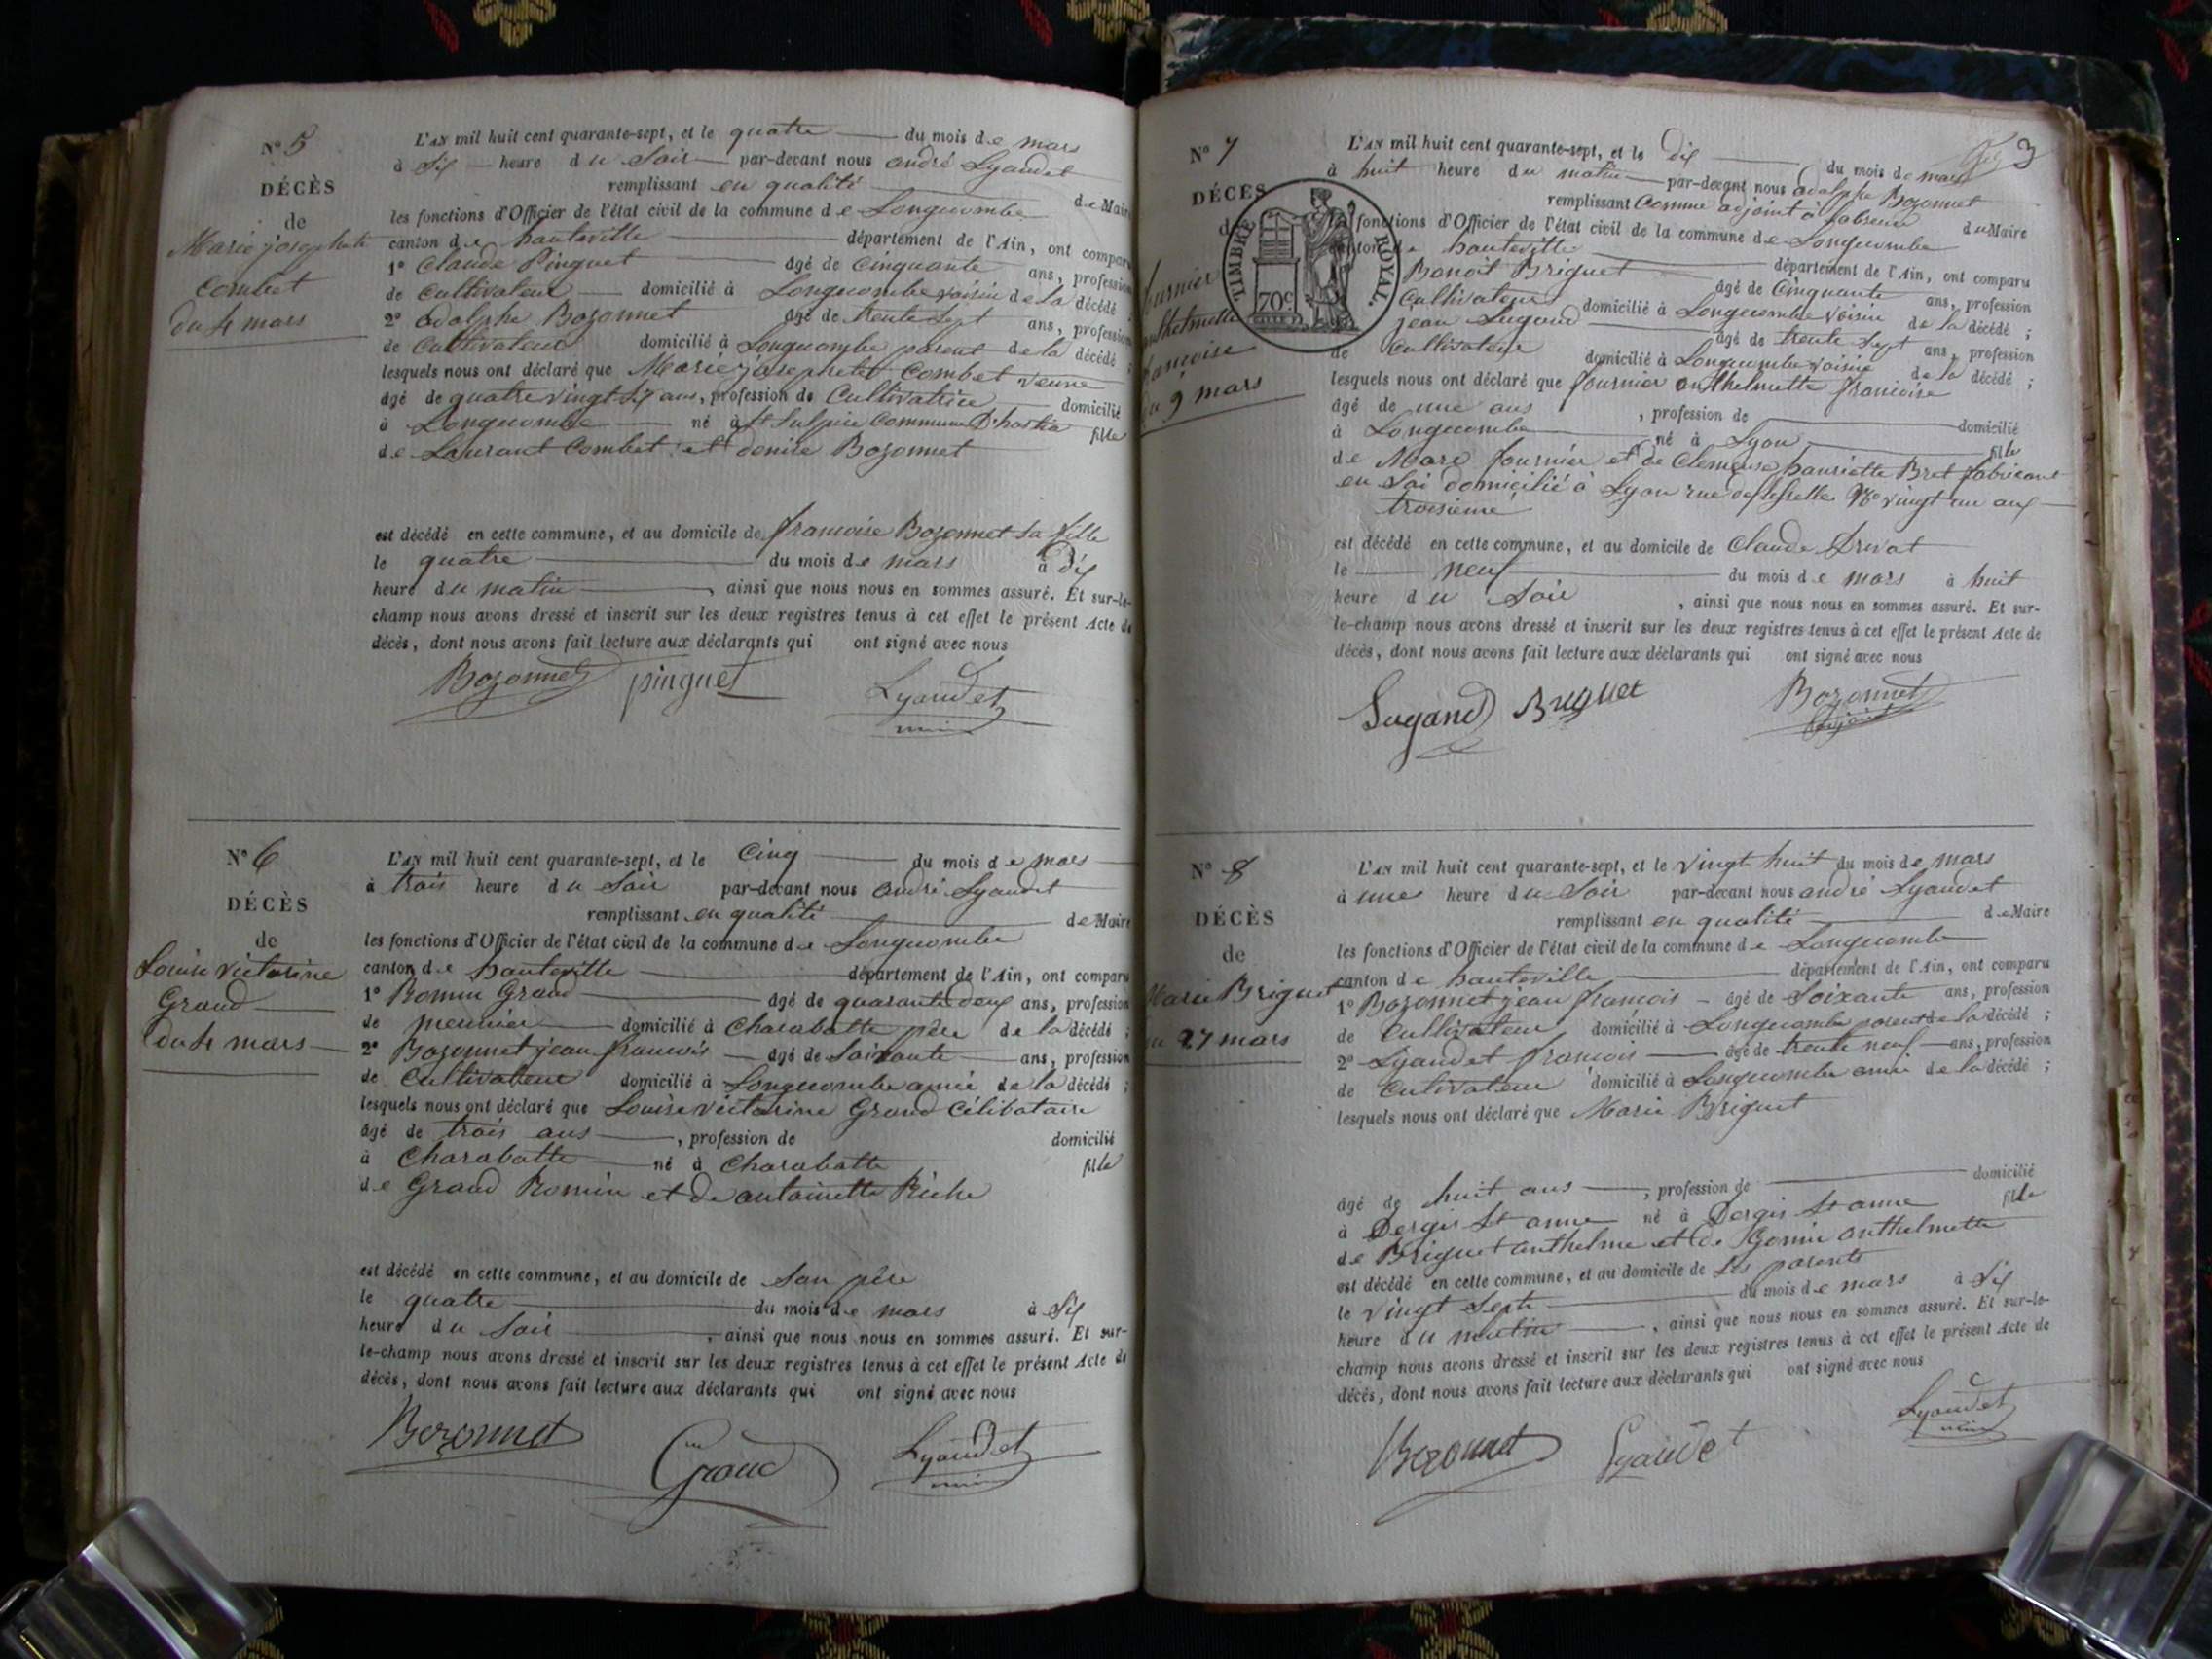 N° 5
DÉCÈS
de
Marie josephete
Combet
du 4 mars
L'AN mil huit cent quarante-sept, et le quatre du mois de mars
à Six heure du Soir par-devant nous andré Lyaudet
remplissant en qualité de Maire
les fonctions d'Officier de l'état civil de la commune de Longecombe
canton de hauteville département de l'Ain, ont comparu
1° Claude Pinguet âgé de Cinquante ans, profession
de Cultivateur domicilié à Longecombe voisin de la décédé
2° adolphe Bozonnet âgé de trente Sept ans, profession
de Cultivateur domicilié à Longecombe parent de la décédé ;
lesquels nous ont déclaré que Marie josephete Combet veuve
âgé de quatre vingt Six ans, profession de Cultivatrice domicilié
à Longecombe né à St Sulpice Commune D'hostia fille
de Laurant Combet et denise Bozonnet
est décédé en cette commune, et au domicile de francoise Bozonnet sa fille
le quatre du mois de mars à dix
heure du matin , ainsi que nous nous en sommes assuré. Et sur-le-
champ nous avons dressé et inscrit sur les deux registres tenus à cet effet le présent Acte de
décès, dont nous avons fait lecture aux déclarants qui ont signé avec nous
Bozonnet pinguet Lyaudet
N° 6
DÉCÈS
de
Louise victorine
Grand
du 4 mars
L'AN mil huit cent quarante-sept, et le Cinq du mois de mars
à trois heure du Soir par-devant nous andré Lyaudet
remplissant en qualité de Maire
les fonctions d'Officier de l'état civil de la commune de Longecombe
canton de hauteville département de l'Ain, ont comparu
1° Romin Grand âgé de quarante deux ans, profession
de meunier domicilié à Charabotte père de la décédé ;
2° Bozonnet jean francois âgé de Soixante ans, profession
de Cultivateur domicilié à Longecombe amie de la décédé ;
lesquels nous ont déclaré que Louise victorine Grand Célibataire
âgé de trois ans , profession de domicilié
à Charabotte né à Charabotte fille
de Grand Romin et de antoinette Riche
est décédé en cette commune, et au domicile de Son père
le quatre du mois de mars à Six
heure du Soir , ainsi que nous nous en sommes assuré. Et sur-
le-champ nous avons dressé et inscrit sur les deux registres tenus à cet effet le présent Acte de
décès, dont nous avons fait lecture aux déclarants qui ont signé avec nous
Bozonnet Grand Lyaudet
3
N° 7
DÉCÈS
de
fournier
anthelmette
francoise
du 9 mars
TIMBRE ROYAL.
70c
L'AN mil huit cent quarante-sept, et le dix du mois de mars
à huit heure du matin par-devant nous adolphe Bozonnet
remplissant Comme adjoint à l'absence du Maire
les fonctions d'Officier de l'état civil de la commune de Longecombe
canton de hauteville département de l'Ain, ont comparu
Benoit Briguet âgé de Cinquante ans, profession
Cultivateur domicilié à Longecombe voisin de la décédé ;
jean Sugand âgé de trente Sept ans, profession
de Cultivateur domicilié à Longecombe voisin de la décédé ;
lesquels nous ont déclaré que fournier anthelmette francoise
âgé de une ans , profession de domicilié
à Longecombe né à Lyon fille
de Marc fournier et de Clemense hanriette Bret fabricant
en Soi domicilié à Lyon rue N° vingt un aux
troisième
est décédé en cette commune, et au domicile de Claude
le neuf du mois de mars à huit
heure du Soir , ainsi que nous nous en sommes assuré. Et sur-
le-champ nous avons dressé et inscrit sur les deux registres tenus à cet effet le présent Acte de
décès, dont nous avons fait lecture aux déclarants qui ont signé avec nous
Sugand Briguet Bozonnet
adjoint
N° 8
DÉCÈS
de
Marie Briguet
du 27 mars
L'AN mil huit cent quarante-sept, et le vingt huit du mois de mars
à une heure du Soir par-devant nous andré Lyaudet
remplissant en qualité de Maire
les fonctions d'Officier de l'état civil de la commune de Longecombe
canton de hauteville département de l'Ain, ont comparu
1° Bozonnet jean francois âgé de Soixante ans, profession
de Cultivateur domicilié à Longecombe parent de la décédé ;
2° Lyaudet francois âgé de trente neuf ans, profession
de Cultivateur domicilié à Longecombe amie de la décédé ;
lesquels nous ont déclaré que Marie Briguet
âgé de huit ans , profession de domicilié
à Dergis St anne né à Dergis St anne fille
de Briguet anthelme et de Gonin anthelmette
est décédé en cette commune, et au domicile de Ses parents
le vingt Sept du mois de mars à Six
heure du matin , ainsi que nous nous en sommes assuré. Et sur-le-
champ nous avons dressé et inscrit sur les deux registres tenus à cet effet le présent Acte de
décès, dont nous avons fait lecture aux déclarants qui ont signé avec nous
Bozonnet Lyaudet Lyaudet